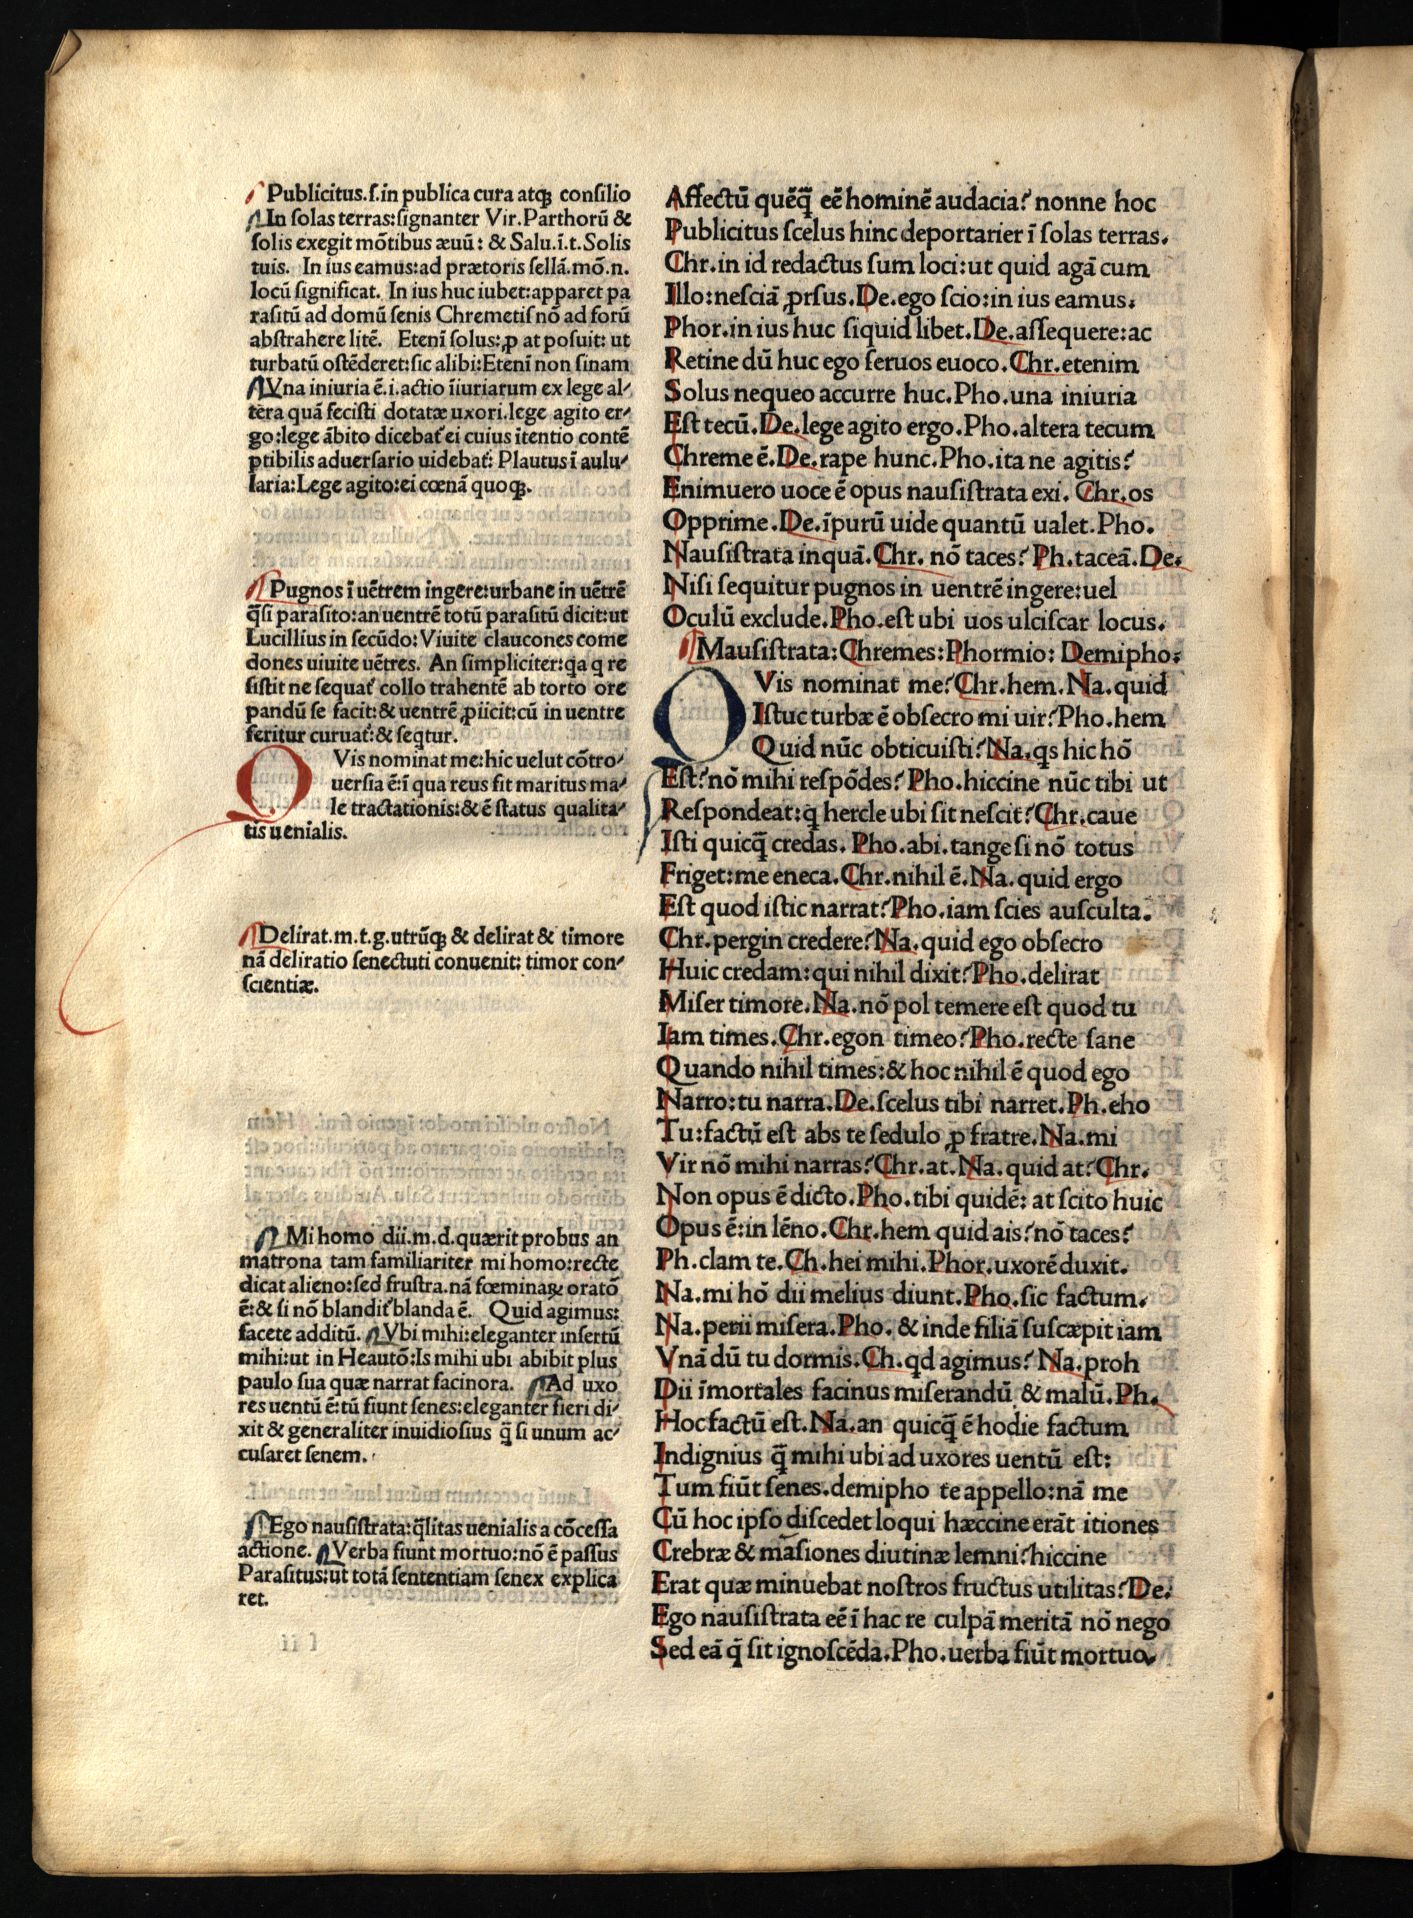 Publicitus.ſ.in publica cura atqꝫ conſilio
In ſolas terras:ſignanter Vir.Parthorū &
ſolis exegit mōtibus æuū: & Salu.ī.t.Solis
tuis. In ius eamus:ad prætoris ſellā.mō.n.
locū ſignificat. In ius huc iubet:apparet pa
raſitū ad domū ſenis Chremetiſ nō ad forū
abſtrahere litē. Etenī ſolus:ꝓ at poſuit: ut
turbatū oſtēderet:ſic alibi:Etenī non ſinam
Vna iniuria ē.i.actio īiuriarum ex lege al-
tera quā feciſti dotatæ uxori.lege agito er-
go:lege ābito dicebat᷑ ei cuius itentio contē
ptibilis aduerſario uidebat᷑: Plautus ī aulu-
laria:Lege agito:ei cœnā quoqꝫ.
Pugnos ī uētrem ingere:urbane in uētrē
q̄ſi paraſito:an uentrē totū paraſitū dicit:ut
Lucillius in ſecūdo:Viuite claucones come
dones uiuite uētres. An ſimpliciter:qa q re
ſiſtit ne ſequat᷑ collo trahentē ab torto ore
pandū ſe facit:& uentrē ꝓiicit:cū in uentre
feritur curuat᷑:& ſeqtur.
QVis nominat me:hic uelut cōtro-
uerſia ē:ī qua reus fit maritus ma-
le tractationis:& ē ſtatus qualita-
tis uenialis.
Delirat.m.t.g.utrūqꝫ & delirat & timore
nā deliratio ſenectuti conuenit: timor con-
ſcientiæ.
Mi homo dii.m.d.quærit probus an
matrona tam familiariter mi homo:recte
dicat alieno:ſed fruſtra.nā fœminaꝝ oratō
ē:& ſi nō blandit᷑ blanda ē. Quid agimus:
facete additū. Vbi mihi:eleganter inſertū
mihi:ut in Heautō:Is mihi ubi abibit plus
paulo ſua quæ narrat facinora. Ad uxo
res uentū ē:tū fiunt ſenes:eleganter fieri di-
xit & generaliter inuidioſius q̄ ſi unum ac-
cuſaret ſenem.
Ego nauſiſtrata:q̄litas uenialis a cōceſſa
actione. Verba fiunt mortuo:nō ē paſſus
Paraſitus:ut totā ſententiam ſenex explica
ret.
Affectū quēq̄ eē hominē audacia? nonne hoc
Publicitus ſcelus hinc deportarier ī ſolas terras.
Chr.in id redactus ſum loci:ut quid agā cum
Illo:neſciā ꝓrſus.De.ego ſcio:in ius eamus.
Phor.in ius huc ſiquid libet.De.aſſequere:ac
Retine dū huc ego ſeruos euoco.Chr.etenim
Solus nequeo accurre huc.Pho.una iniuria
Eſt tecū.De.lege agito ergo.Pho.altera tecum
Chreme ē.De.rape hunc.Pho.ita ne agitis?
Enimuero uoce ē opus nauſiſtrata exi. Chr.os
Opprime.De.īpurū uide quantū ualet.Pho.
Nauſiſtrata inquā.Chr. nō taces? Ph.taceā.De.
Niſi ſequitur pugnos in uentrē ingere:uel
Oculū exclude.Pho.eſt ubi uos ulciſcar locus.
Mauſiſtrata:Chremes:Phormio: Demipho.
QVis nominat me?Chr.hem.Na.quid
Iſtuc turbæ ē obſecro mi uir?Pho.hem
Quid nūc obticuiſti?Na.qs hic hō
Eſt?nō mihi reſpōdes?Pho.hiccine nūc tibi ut
Reſpondeat:q̄ hercle ubi ſit neſcit?Chr.caue
Iſti quicq̄ credas. Pho.abi.tange ſi nō totus
Friget:me eneca.Chr.nihil ē.Na.quid ergo
Eſt quod iſtic narrat?Pho.iam ſcies auſculta.
Chr.pergin credere?Na.quid ego obſecro
Huic credam:qui nihil dixit?Pho.delirat
Miſer timore.Na.nō pol temere eſt quod tu
Iam times.Chr.egon timeo?Pho.recte ſane
Quando nihil times:& hoc nihil ē quod ego
Narro:tu narra.De.ſcelus tibi narret.Ph.eho
Tu:factū eſt abs te ſedulo ꝓ fratre.Na.mi
Vir nō mihi narras?Chr.at.Na.quid at?Chr.
Non opus ē dicto.Pho.tibi quidē: at ſcito huic
Opus ē:in lēno.Chr.hem quid ais?nō taces?
Ph.clam te.Ch.hei mihi.Phor.uxorē duxit.
Na.mi hō dii melius diunt.Pho.ſic factum.
Na.perii miſera.Pho. & inde filiā ſuſcæpit iam
Vnā dū tu dormis.Ch.qd agimus? Na.proh
Dii īmortales facinus miſerandū & malū.Ph.
Hoc factū eſt.Na.an quicq̄ ē hodie factum
Indignius q̄ mihi ubi ad uxores uentū eſt:
Tum fiūt ſenes.demipho te appello:nā me
Cū hoc ipſo diſcedet loqui hæccine erāt itiones
Crebræ & māſiones diutinæ lemni?hiccine
Erat quæ minuebat noſtros fructus utilitas?De.
Ego nauſiſtrata eē ī hac re culpā meritā nō nego
Sed eā q̄ ſit ignoſcēda.Pho.uerba fiūt mortuo.